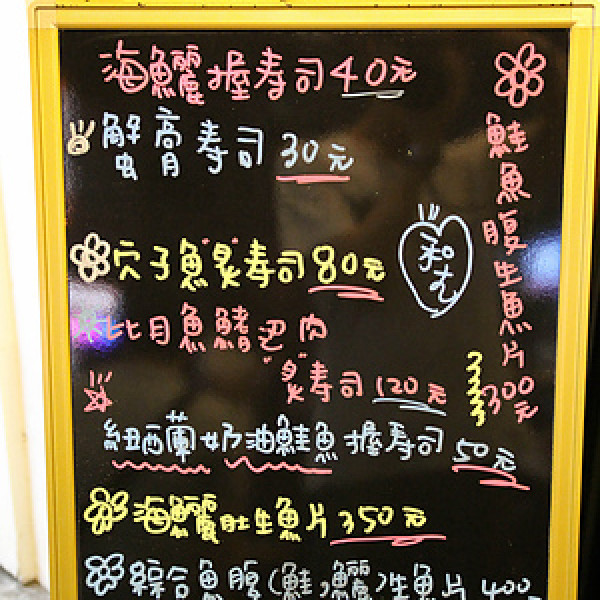 海鱺握壽司40元
蟹膏壽司30元
穴子魚炙壽司80元
比目魚鰭邊肉
炙壽司120元
紐西蘭奶油鮭魚握壽司50元
海鱺肚生魚片350元
綜合魚腹(鮭,鱺)生魚片400
鮭魚腹生魚片300元